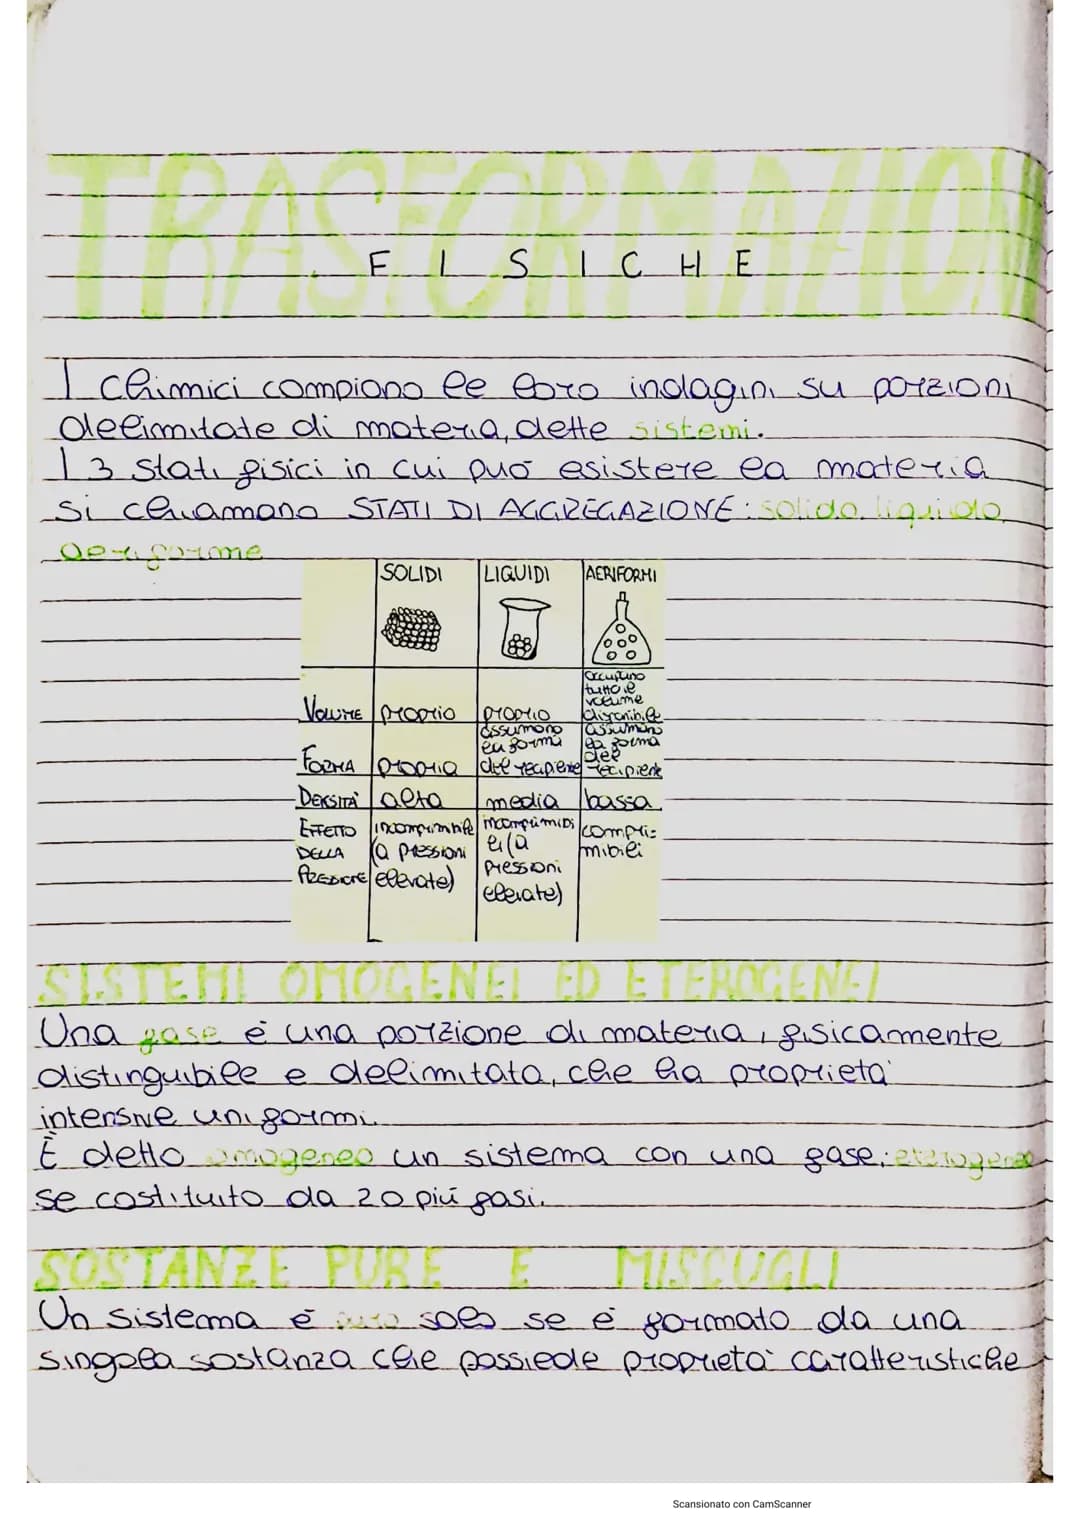 TRASFORMAZION
FISICHE
I chimici compiono le loro indagini su porzioni
delimitate di materia, dette sistemi.
I 3 stati fisici in cui può esistere la materia
si chiamano STATI DI AGGREGAZIONE: solido, liquido,
aeriforme
SOLIDI LIQUIDI AERIFORMI
VOLUME proprio proprio occupano tutto il volume disponibile
FORMA propria assumono la forma del recipiente assumono la forma del recipiente
DENSITÀ alta media bassa
EFFETTO DELLA incomprimibile (a pressioni elevate) incomprimibili (a pressioni elevate) compri=
mibili
SISTEMI OMOGENEI ED ETEROGENEI
Una fase è una porzione di materia, fisicamente
distinguibile e delimitata, che ha proprietà
intensive uniformi.
È detto omogeneo un sistema con una fase; eterogeneo
se costituito da 2 o più fasi.
SOSTANZE PURE E MISCUGLI
Un sistema è puro solo se è formato da una
singola sostanza che possiede proprietà caratteristiche
Scansionato con CamScanner